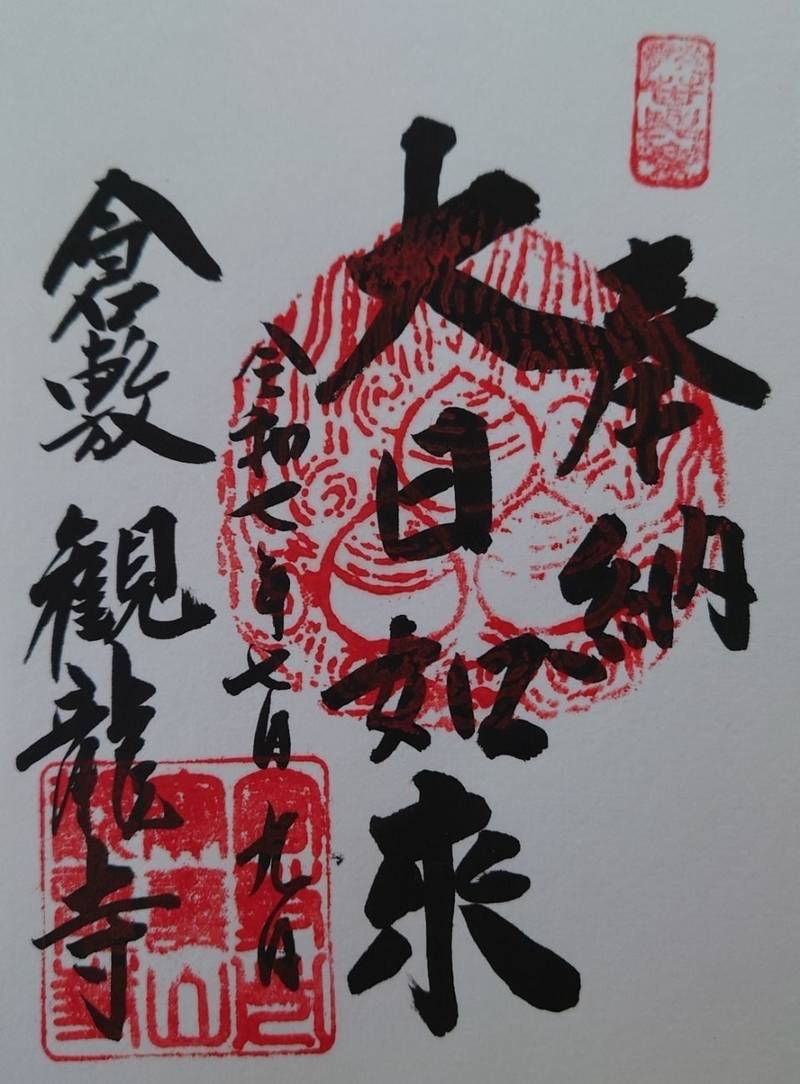 奉納
大日如来
令和七年七月九日
倉敷
観龍寺